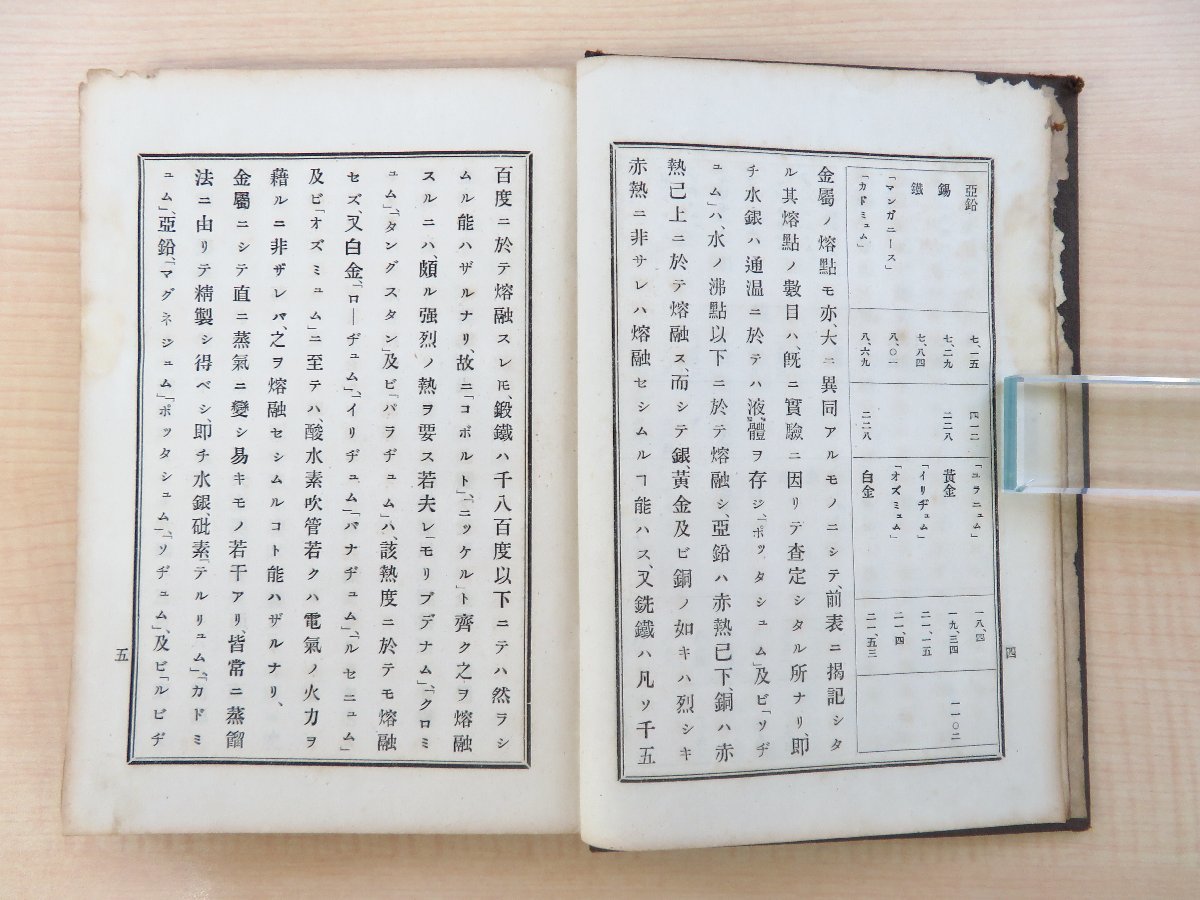 亞鉛 七、一五 四一二 「ユラニュム」 一八、四
錫 七、二九 二二八 黃金 一九、三四 一一〇二
鐵 七、八四 「イリヂュム」 二一、一五
「マンガニース」 八、〇一 「オズミュム」 二一、四
「カドミュム」 八、六九 二二八 白金 二一、五三
金屬ノ熔點モ亦、大ニ異同アルモノニシテ、前表ニ揭記シタ
ル其熔點ノ數目ハ、旣ニ實驗ニ因リテ査定シタル所ナリ、卽
チ水銀ハ通溫ニ於テハ液體ヲ存ジ、「ポッタシュム」及ビ「ソヂ
ュム」ハ、水ノ沸點以下ニ於テ熔融シ、亞鉛ハ赤熱已下、銅ハ赤
熱已上ニ於テ熔融ス、而シテ銀、黃金及ビ銅ノ如キハ烈シキ
赤熱ニ非サレハ熔融セシムルヿ能ハス、又銑鐵ハ凡ソ千五
四
百度ニ於テ熔融スレモ、鍛鐵ハ千八百度以下ニテハ然ヲシ
ムル能ハザルナリ、故ニ「コボルト」、「ニッケル」ト齊ク之ヲ熔融
スルニハ、頗ル强烈ノ熱ヲ要ス若夫レ「モリブデナム」、「クロミ
ュム」、「タングスタン」及ビ「パラヂュム」ハ、該熱度ニ於テモ熔融
セズ、又白金、「ロ―ヂュム」、「イリヂュム」、「バナヂュム」、「ルセニュム」
及ビ「オズミュム」ニ至テハ、酸水素吹管若クハ電氣ノ火力ヲ
藉ルニ非ザレバ、之ヲ熔融セシムルコト能ハザルナリ、
金屬ニシテ直ニ蒸氣ニ變シ易キモノ若干アリ、皆常ニ蒸餾
法ニ由リテ精製シ得ベシ、卽チ水銀、砒素、「テルリュム」、「カドミ
ュム」、亞鉛、「マグネジュム」、「ポッタシュム」、「ソヂュム」、及ビ「ルビヂ
五